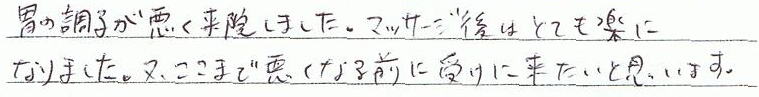 胃の調子が悪く来院しました。マッサージ後はとても楽に
なりました。又、ここまで悪くなる前に受けに来たいと思います。